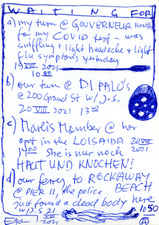 WAITING FOR
a) my turn @ GOUVERNEUR HEALTH
for my COVID test – was
sniffling + light headache + light
flu symptoms yesterday
19 VII 2021
10
b) our turn @ DI PALO'S
@ 200 Grand St w/ J.S.
20 VII 2021 13
c) Martis Member @ her
apt in the LOISAIDA 20 VII 2021
14 she is nur noch
HAUT UND KNOCHEN!
d) our ferry to ROCKAWAY BEACH
@ PIER 11, the police
just found a dead body here
w/ J.S. 21 VII 1:50